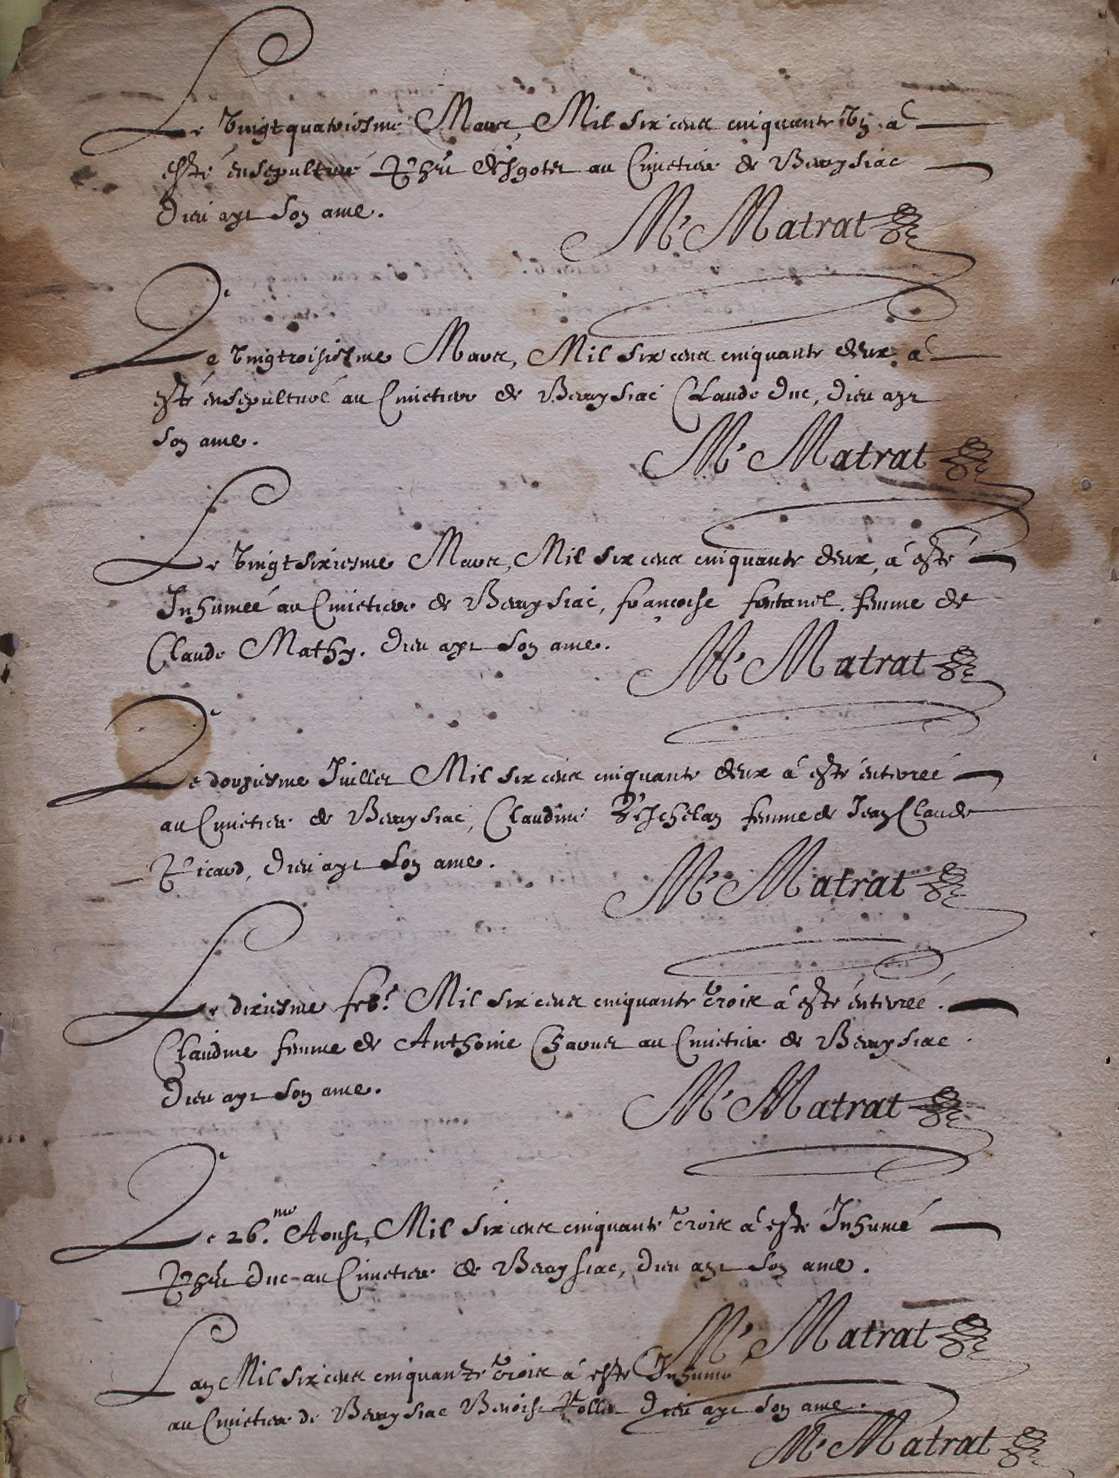 Le vingtquatriesme Mars, Mil six cens cinquante a
esté ensepulturé au Cimetiere de Beaysiac
Dieu aye son ame.
Mre Matrat
Le vingtroisiesme Mars, Mil six cens cinquante deux, a
esté ensepulturé au Cimetiere de Beaysiac Claude Duc, Dieu aye
son ame.
Mre Matrat
Le vingtsixiesme Mars, Mil six cens cinquante deux, a esté
Inhumeé au Cimetiere de Beaysiac, françoise fontanel, femme de
Claude Mathy. Dieu aye son ame.
Mre Matrat
Le douziesme Juillet Mil six cens cinquante deux a esté enterreé
au Cimetiere de Beaysiac, Claudine femme de Jean Claude
Ricard, Dieu aye son ame.
Mre Matrat
Le dixiesme febr. Mil six cens cinquante trois a esté enterreé.
Claudine femme de Anthoine au Cimetiere de Beaysiac.
Dieu aye son ame.
Mre Matrat
Le 26.me Aoust, Mil six cens cinquante trois a esté Inhumé
Duc au Cimetiere de Beaysiac, Dieu aye son ame.
Mre Matrat
Lan Mil six cens cinquante trois a esté Inhumé
au Cimetiere de Beaysiac Benoist Dieu aye son ame.
Mre Matrat